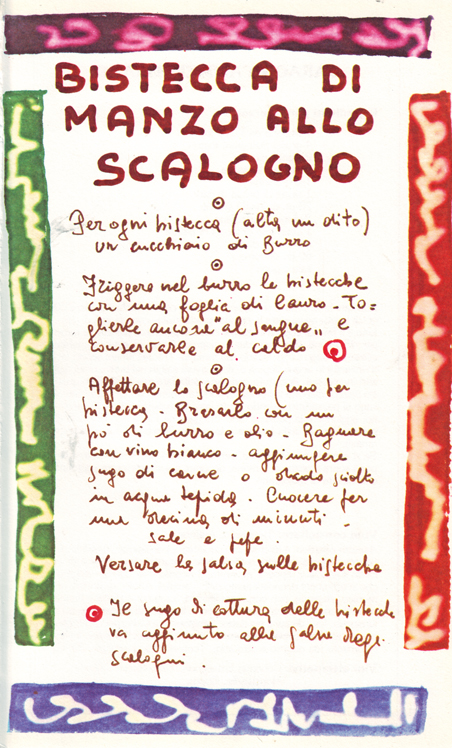 BISTECCA DI
MANZO ALLO
SCALOGNO
Per ogni bistecca (alta un dito)
un cucchiaio di Burro
Friggere nel burro le bistecche
con una foglia di lauro - To=
glierle ancora "al sangue„ e
conservarle al caldo
Affettare lo scalogno (uno per
bistecca - Brasarlo con un
pò di burro e olio - Bagnare
con vino bianco - aggiungere
sugo di carne o dado sciolto
in acqua tepida. Cuocere per
una decina di minuti -
Sale e pepe.
Versare la salsa sulle bistecche
Il sugo di cottura delle bistecche
va aggiunto alla salsa degli
scalogni.